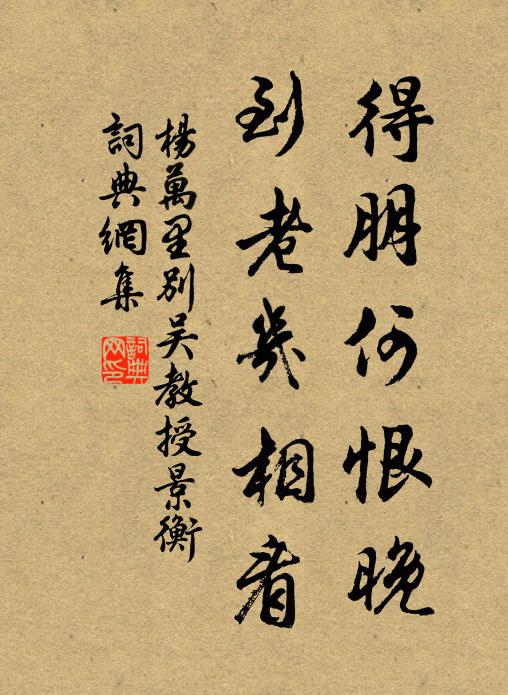 得朋何恨晚
到老幾相看
楊萬里別吳教授景衡
詞典網集
詞典
网印